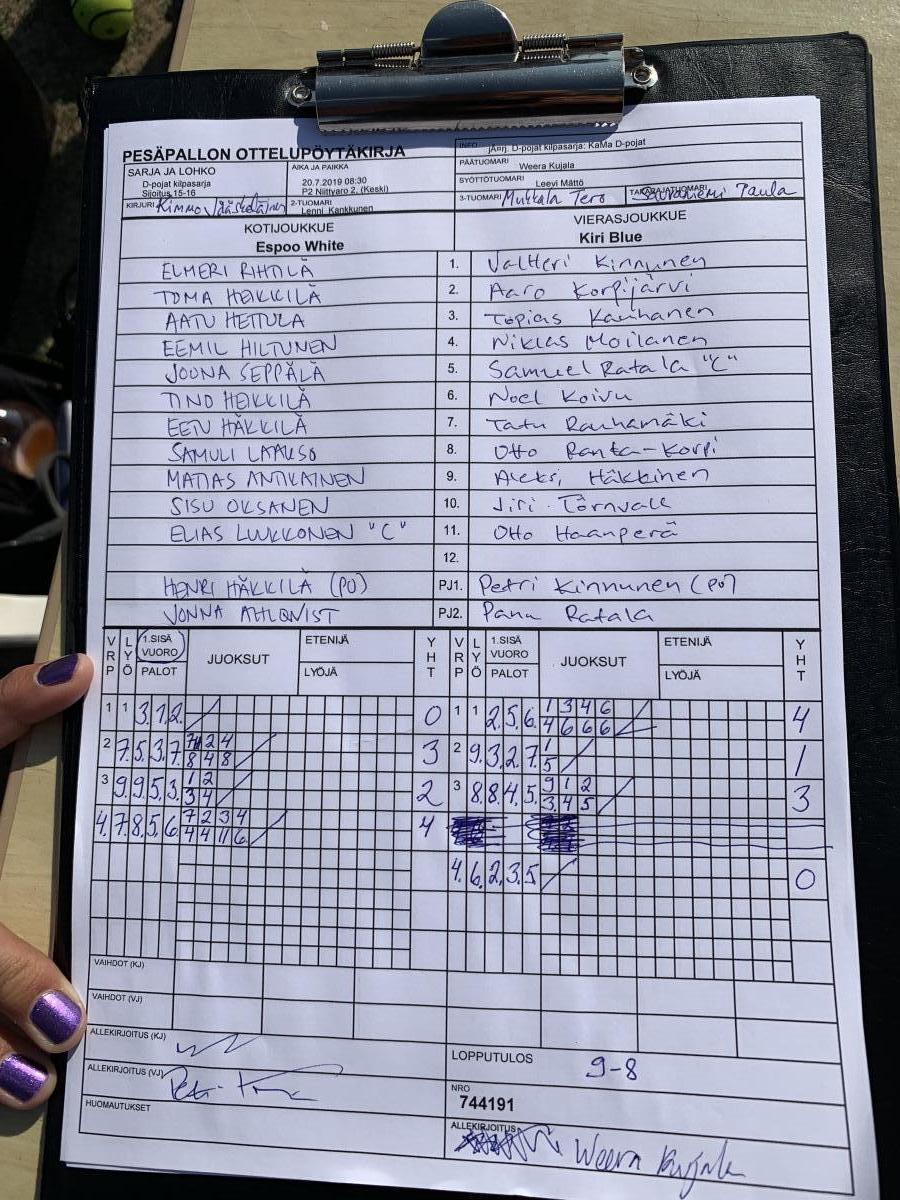 PESÄPALLON OTTELUPÖYTÄKIRJA
INFO Jänj. D-pojat kilpasarja: KaMa D-pojat
SARJA JA LOHKO
D-pojat kilpasarja
Sijoitus 15-16
AIKA JA PAIKKA
20.7.2019 08:30
P2 Niittyaro 2, (Keski)
PÄÄTUOMARI Weera Kujala
SYÖTTÖTUOMARI Leevi Mättö
KIRJURI Kimmo Jääskeläinen
2-TUOMARI Lenni Kankkunen
3-TUOMARI Mukkala Tero
TAKARAJATUOMARI Paula
KOTIJOUKKUE
Espoo White
VIERASJOUKKUE
Kiri Blue
ELMERI RIHTILÄ 1. Valtteri Kinnunen
TOMA HEIKKILÄ 2. Aaro Korpijärvi
AATU HETTULA 3. Topias Kauhanen
EEMIL HILTUNEN 4. Niklas Moilanen
JOONA SEPPÄLÄ 5. Samuel Ratala "C"
TINO HEIKKILÄ 6. Noel Koivu
EETU HÄKKILÄ 7. Tatu Rauhamäki
SAMULI LAAKSO 8. Otto Ranta-Korpi
MATIAS ANTIKAINEN 9. Aleksi Häkkinen
SISU OKSANEN 10. Jiri Törnvall
ELIAS LUUKKONEN "C" 11. Otto Haanperä
12.
HENRI HÄKKILÄ (PO) PJ1. Petri Kinnunen (PO)
JONNA AHLQVIST PJ2. Panu Ratala
VRP LYÖ 1.SISÄ VUORO PALOT JUOKSUT ETENIJÄ LYÖJÄ YHT VRP LYÖ 1.SISÄ VUORO PALOT JUOKSUT ETENIJÄ LYÖJÄ YHT
1 1 3. 1. 2. 0
1 1 2. 5. 6. 1 3 4 6 4
4 6 6 6
2 7. 5. 3. 7. 2 4 3
8 4 8
2 9. 3. 2. 7. 1 1
5
3 9. 9. 5. 3. 1 2 2
3 4
3 8. 8. 4. 5. 9 1 2 3
3 4 5
4. 7. 8. 5. 6. 7 2 3 4 4
4 4 11 6
4. 6. 2. 3. 5. 0
VAIHDOT (KJ)
VAIHDOT (VJ)
ALLEKIRJOITUS (KJ)
ALLEKIRJOITUS (VJ)
HUOMAUTUKSET
LOPPUTULOS 9-8
NRO
744191
ALLEKIRJOITUS Weera Kujala